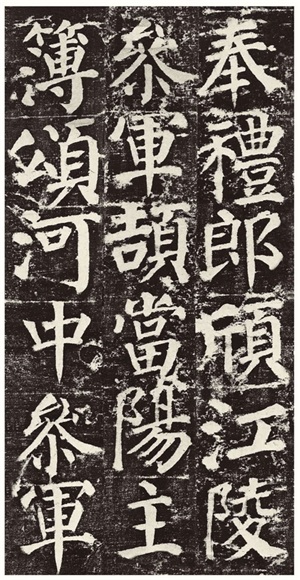 奉禮郎頎江陵
叅軍頡當陽主
簿頌河中叅軍